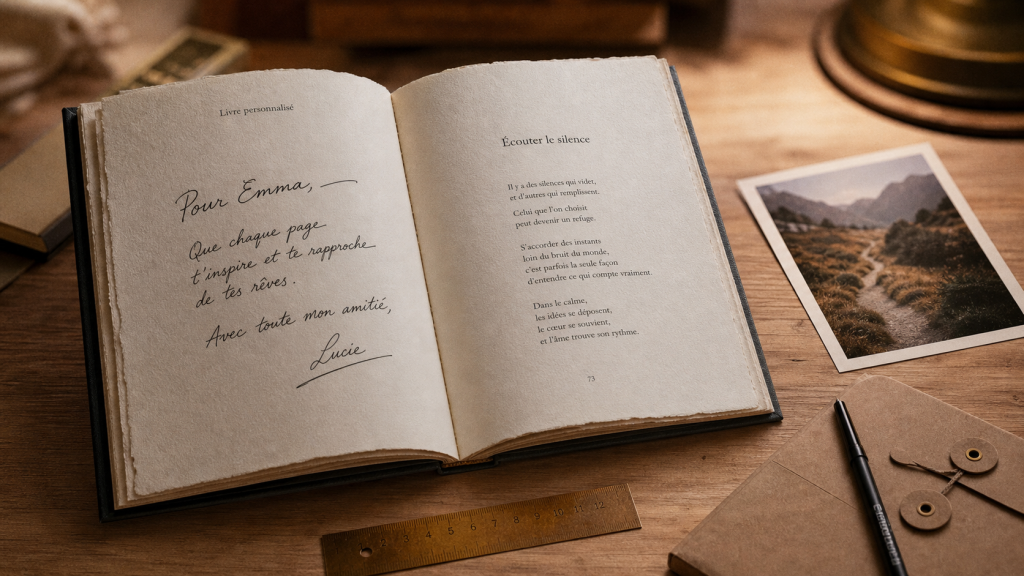 Livre personnalisé
Pour Emma, —
Que chaque page
t'inspire et te rapproche
de tes rêves.
Avec toute mon amitié,
Lucie
Écouter le silence
Il y a des silences qui vident,
et d'autres qui remplissent.
Celui que l'on choisit
peut devenir un refuge.
S'accorder des instants
loin du bruit du monde,
c'est parfois la seule façon
d'entendre ce qui compte vraiment
Dans le calme,
les idées se déposent,
le cœur se souvient,
et l'âme trouve son rythme.
73
2 3 4 5 6 7 8 9 10 11 12